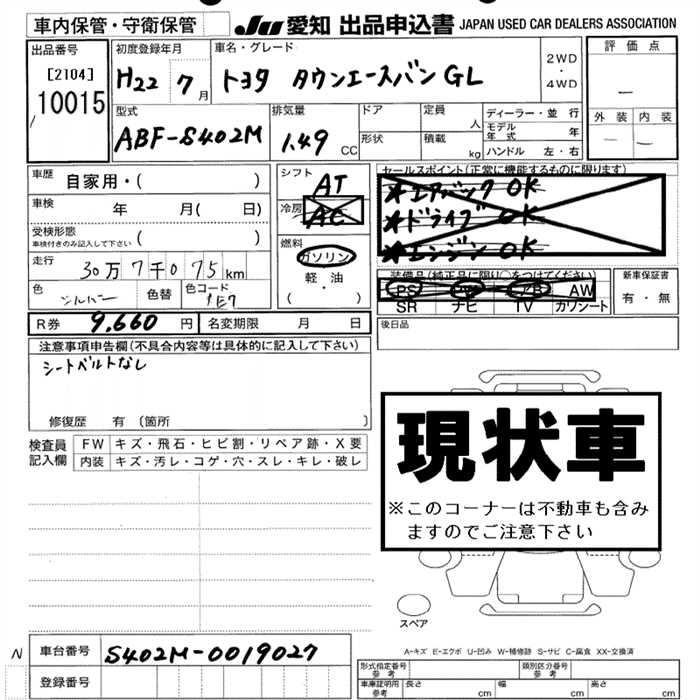 車内保管・守衛保管 JU 愛知 出品申込書 JAPAN USED CAR DEALERS ASSOCIATION
出品番号
[2104]
10015
初度登録年月
H22 7月
車名・グレード
トヨタ タウンエースバン GL
2WD
・
4WD
評価点
－
外装 内装
－ －
型式
ABF-S402M
排気量
1.49 CC
ドア
形状
定員 人
積載 kg
ディーラー・並行
モデル年式 年
ハンドル 左・右
車歴 自家用・( )
車検 年 月( 日)
受検形態
車検付きのみ記入して下さい ( )
走行 30万7千075km
色 シルバー 色替 色コード 1E7
シフト AT
冷房 AC
燃料
ガソリン
軽・油
( ・ )
セールスポイント(正常に機能するものに限ります)
★エアバック OK
★ドライブ OK
★エンジン OK
装備品(純正品に限り○をつけてください)
PS PW AB AW
SR ナビ TV カワシート
新車保証書
有・無
R券 9,660 円 名変期限 月 日
後日品
注意事項申告欄(不具合内容等は具体的に記入して下さい)
シートベルトなし
修復歴 有 (箇所 )
検査員記入欄
FW キズ・飛石・ヒビ割・リペア跡・X要
内装 キズ・汚レ・コゲ・穴・スレ・キレ・破レ
現状車
※このコーナーは不動車も含み
ますのでご注意下さい
スペア
A-キズ E-エクボ U-凹み W-補修跡 S-サビ C-腐食 XX-交換済
N 車台番号 S402M-0019027
登録番号
形式指定番号 参考 類別区分番号 参考
車庫証明用 参考 長さ cm 幅 cm 高さ cm